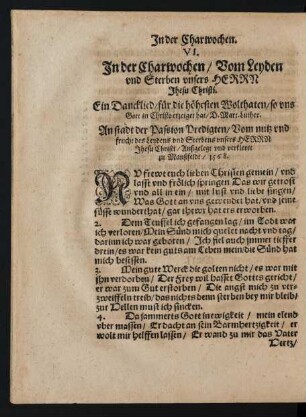 In der Charwochen.
VI.
In der Charwochen / Vom Leyden
vnd Sterben vnsers HERRN
Jhesu Christi.
Ein Dancklied / für die höhesten Wolthaten / so vns
Gott in Christo erzeiget hat / D. Mart. Luther.
An stadt der Passion Predigten / Vom nutz vnd
frucht des Leydens vnd Sterbens vnsers HERRN
Jhesu Christi / Außgelegt vnd verkleret
zu Mansfelde /
NV frewt euch lieben Christen gemein / vnd
lasst vns frölich springen Das wir getrost
vnd all in ein / mit lust vnd liebe singen /
Was Gott an vns gewendet hat / vnd seine
süsse wunderthat / gar thewr hat ers erworben.
2. Dem Teuffel ich gefangen lag / im Todt war
ich verloren / Mein Sünd mich quelet nacht vnd tag /
darinn ich war geboren / Ich fiel auch jmmer tieffer
drein / es war kein guts am Leben mein / die Sünd hat
mich besessen.
3. Mein gute Werck die golten nicht / es war mit
jhn verdorben / Der Frey wil hasset Gottes gericht /
er war zum Gut erstorben / Die angst mich zu ver-
zweiffeln treib / das nichts denn sterben bey mir bleib /
zur Hellen must ich sincken.
4. Da jammerts Gott in ewigkeit / mein elend
vber massen / Er dacht an sein Barmhertzigkeit / er
wolt mir helffen lassen / Er wand zu mir das Vater
Hertz /